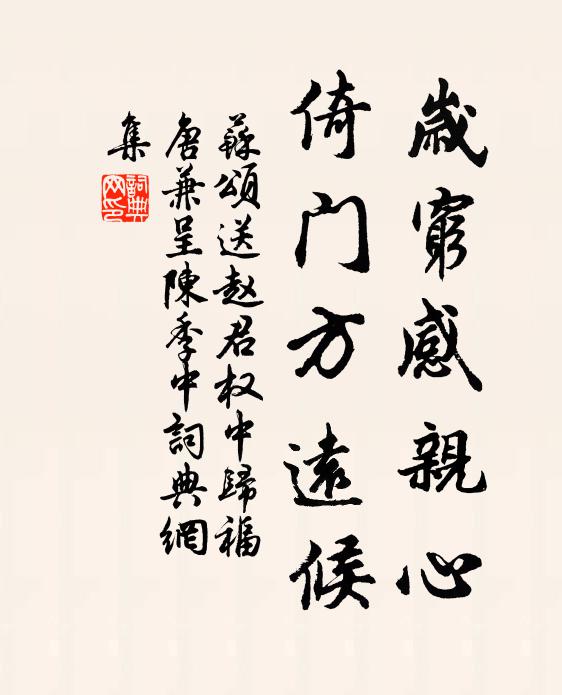 歲窮感親心
倚門方遠候
蘇頌送赵君权中歸福
唐兼呈陳季中詞典網
集
詞典
网印